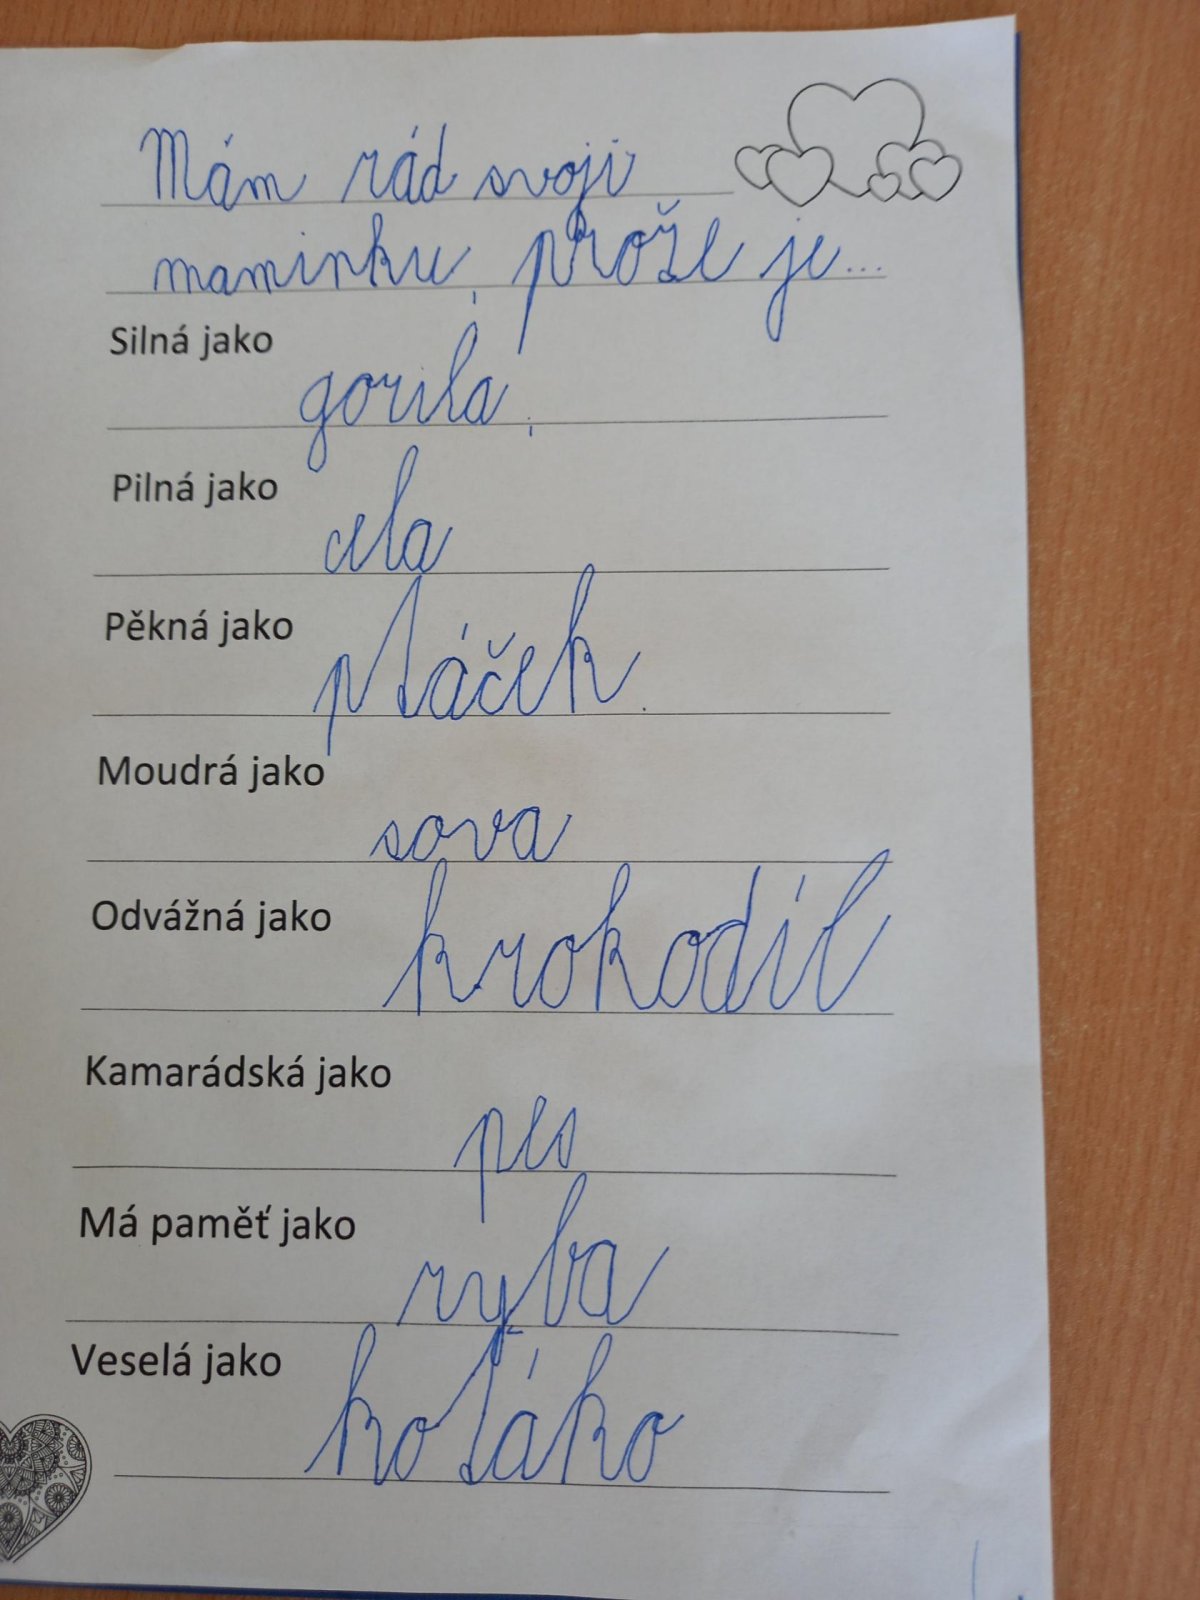 Mám rád svoji
maminku, prože je...
Silná jako
gorila,
Pilná jako
cela
Pěkná jako
ptáček.
Moudrá jako
sova
Odvážná jako
krokodíl
Kamarádská jako
pes
Má paměť jako
ryba
Veselá jako
koťáko